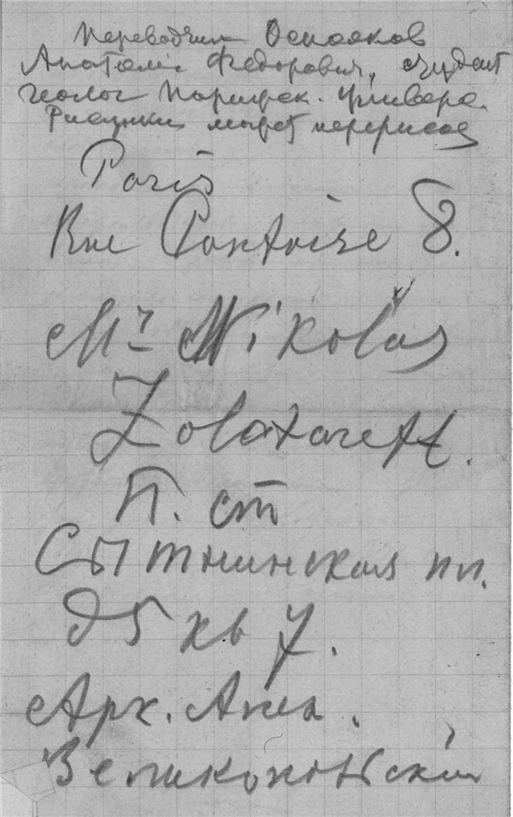 Переводчик Оспояков
Анатолий Федорович, студент
геолог Парижск. Универс.
Рисунки может перерисов
Paris
Rue Pontoise 8.
Mr Nikolas
Zolotareff.
П. ст
Сытнинская пл.
д 5 кв 7.
Арх. Алек.
Великопольский